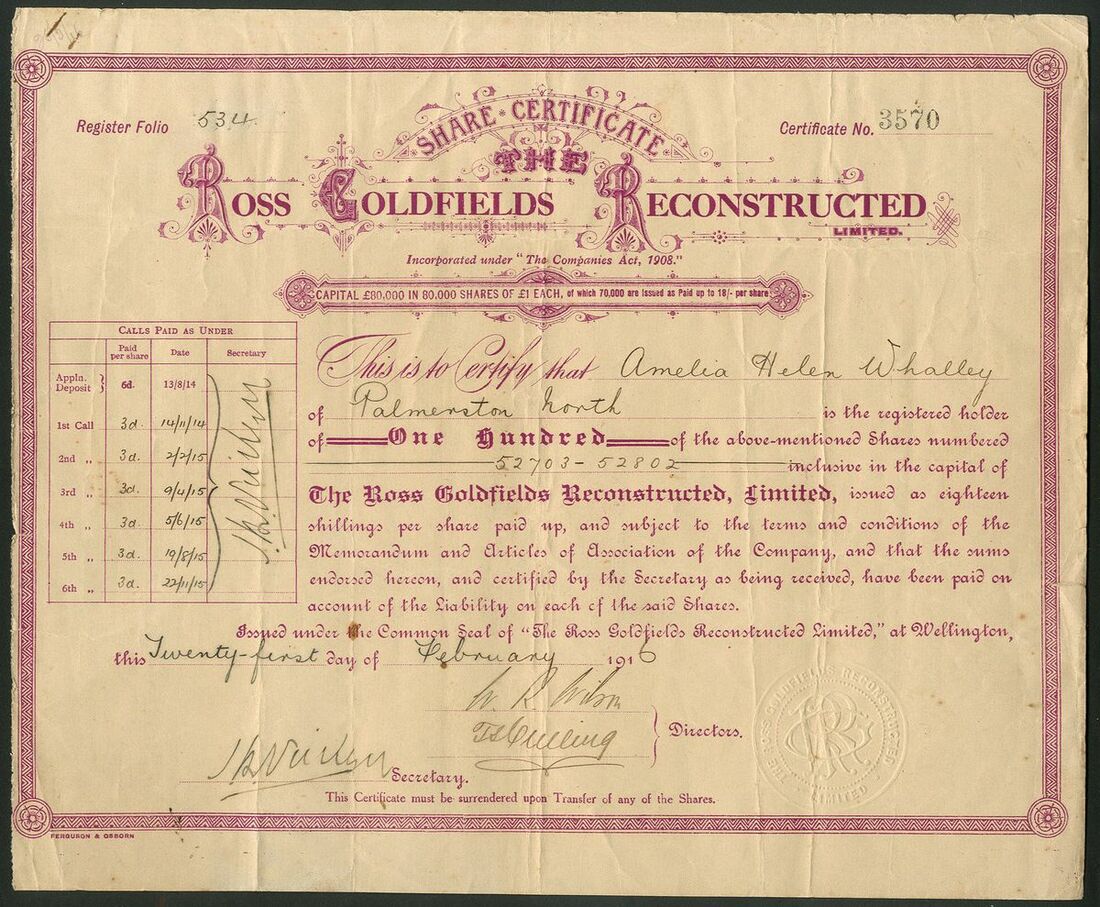 Register Folio 534
SHARE CERTIFICATE
Certificate No. 3570
THE
ROSS GOLDFIELDS RECONSTRUCTED
LIMITED.
Incorporated under "The Companies Act, 1908."
CAPITAL £80,000 IN 80.000 SHARES OF £1 EACH, of which 70,000 are Issued as Paid up to 18/- per share
CALLS PAID AS UNDER
Paid per share Date Secretary
Appln. Deposit } 6d. 13/8/14
1st Call 3d. 14/11/14
2nd „ 3d. 2/2/15
3rd „ 3d. 9/4/15
4th „ 3d. 5/6/15
5th „ 3d. 19/8/15
6th „ 3d. 22/11/15
This is to Certify that Amelia Helen Whalley
of Palmerston North is the registered holder
of One Hundred of the above-mentioned Shares numbered
52703-52802 inclusive in the capital of
The Ross Goldfields Reconstructed, Limited, issued as eighteen
shillings per share paid up, and subject to the terms and conditions of the
Memorandum and Articles of Association of the Company, and that the sums
endorsed hereon, and certified by the Secretary as being received, have been paid on
account of the Liability on each of the said Shares.
Issued under the Common Seal of "The Ross Goldfields Reconstructed Limited," at Wellington,
this Twenty-first day of February 1916
W. R. Wilson
Directors.
Secretary.
This Certificate must be surrendered upon Transfer of any of the Shares.
THE ROSS GOLDFIELDS RECONSTRUCTED LIMITED
FERGUSON & OSBORN